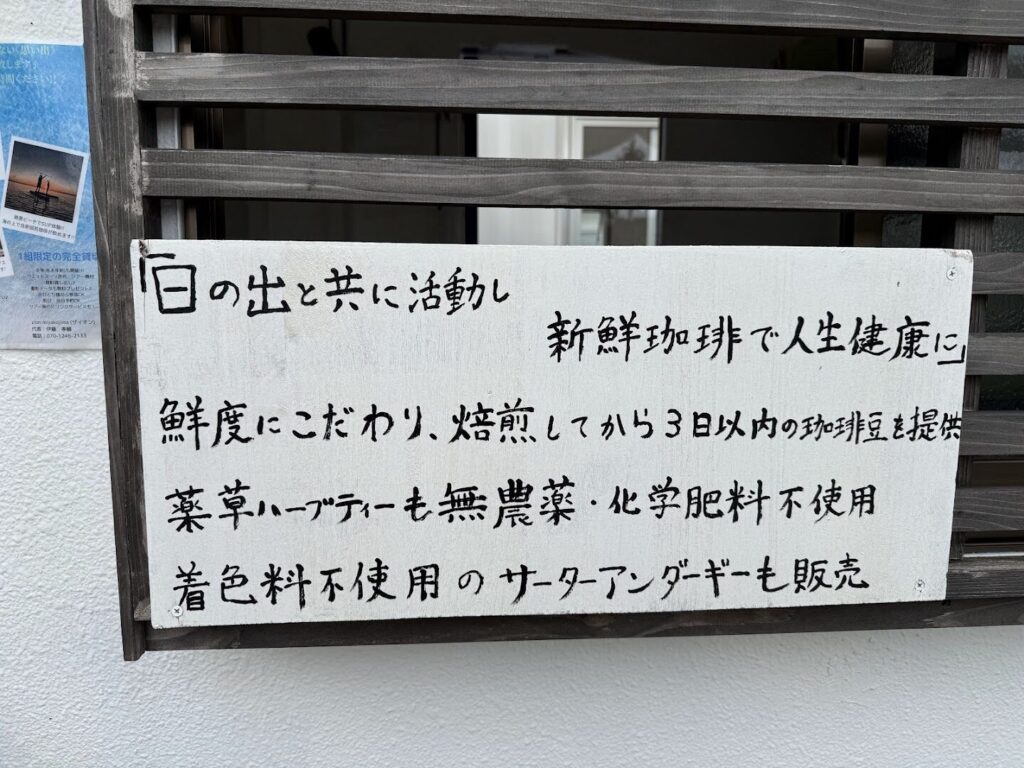 「日の出と共に活動し
新鮮珈琲で人生健康に」
鮮度にこだわり、焙煎してから3日以内の珈琲豆を提供
薬草ハーブティーも無農薬・化学肥料不使用
着色料不使用のサーターアンダーギーも販売
1組限定の完全貸切